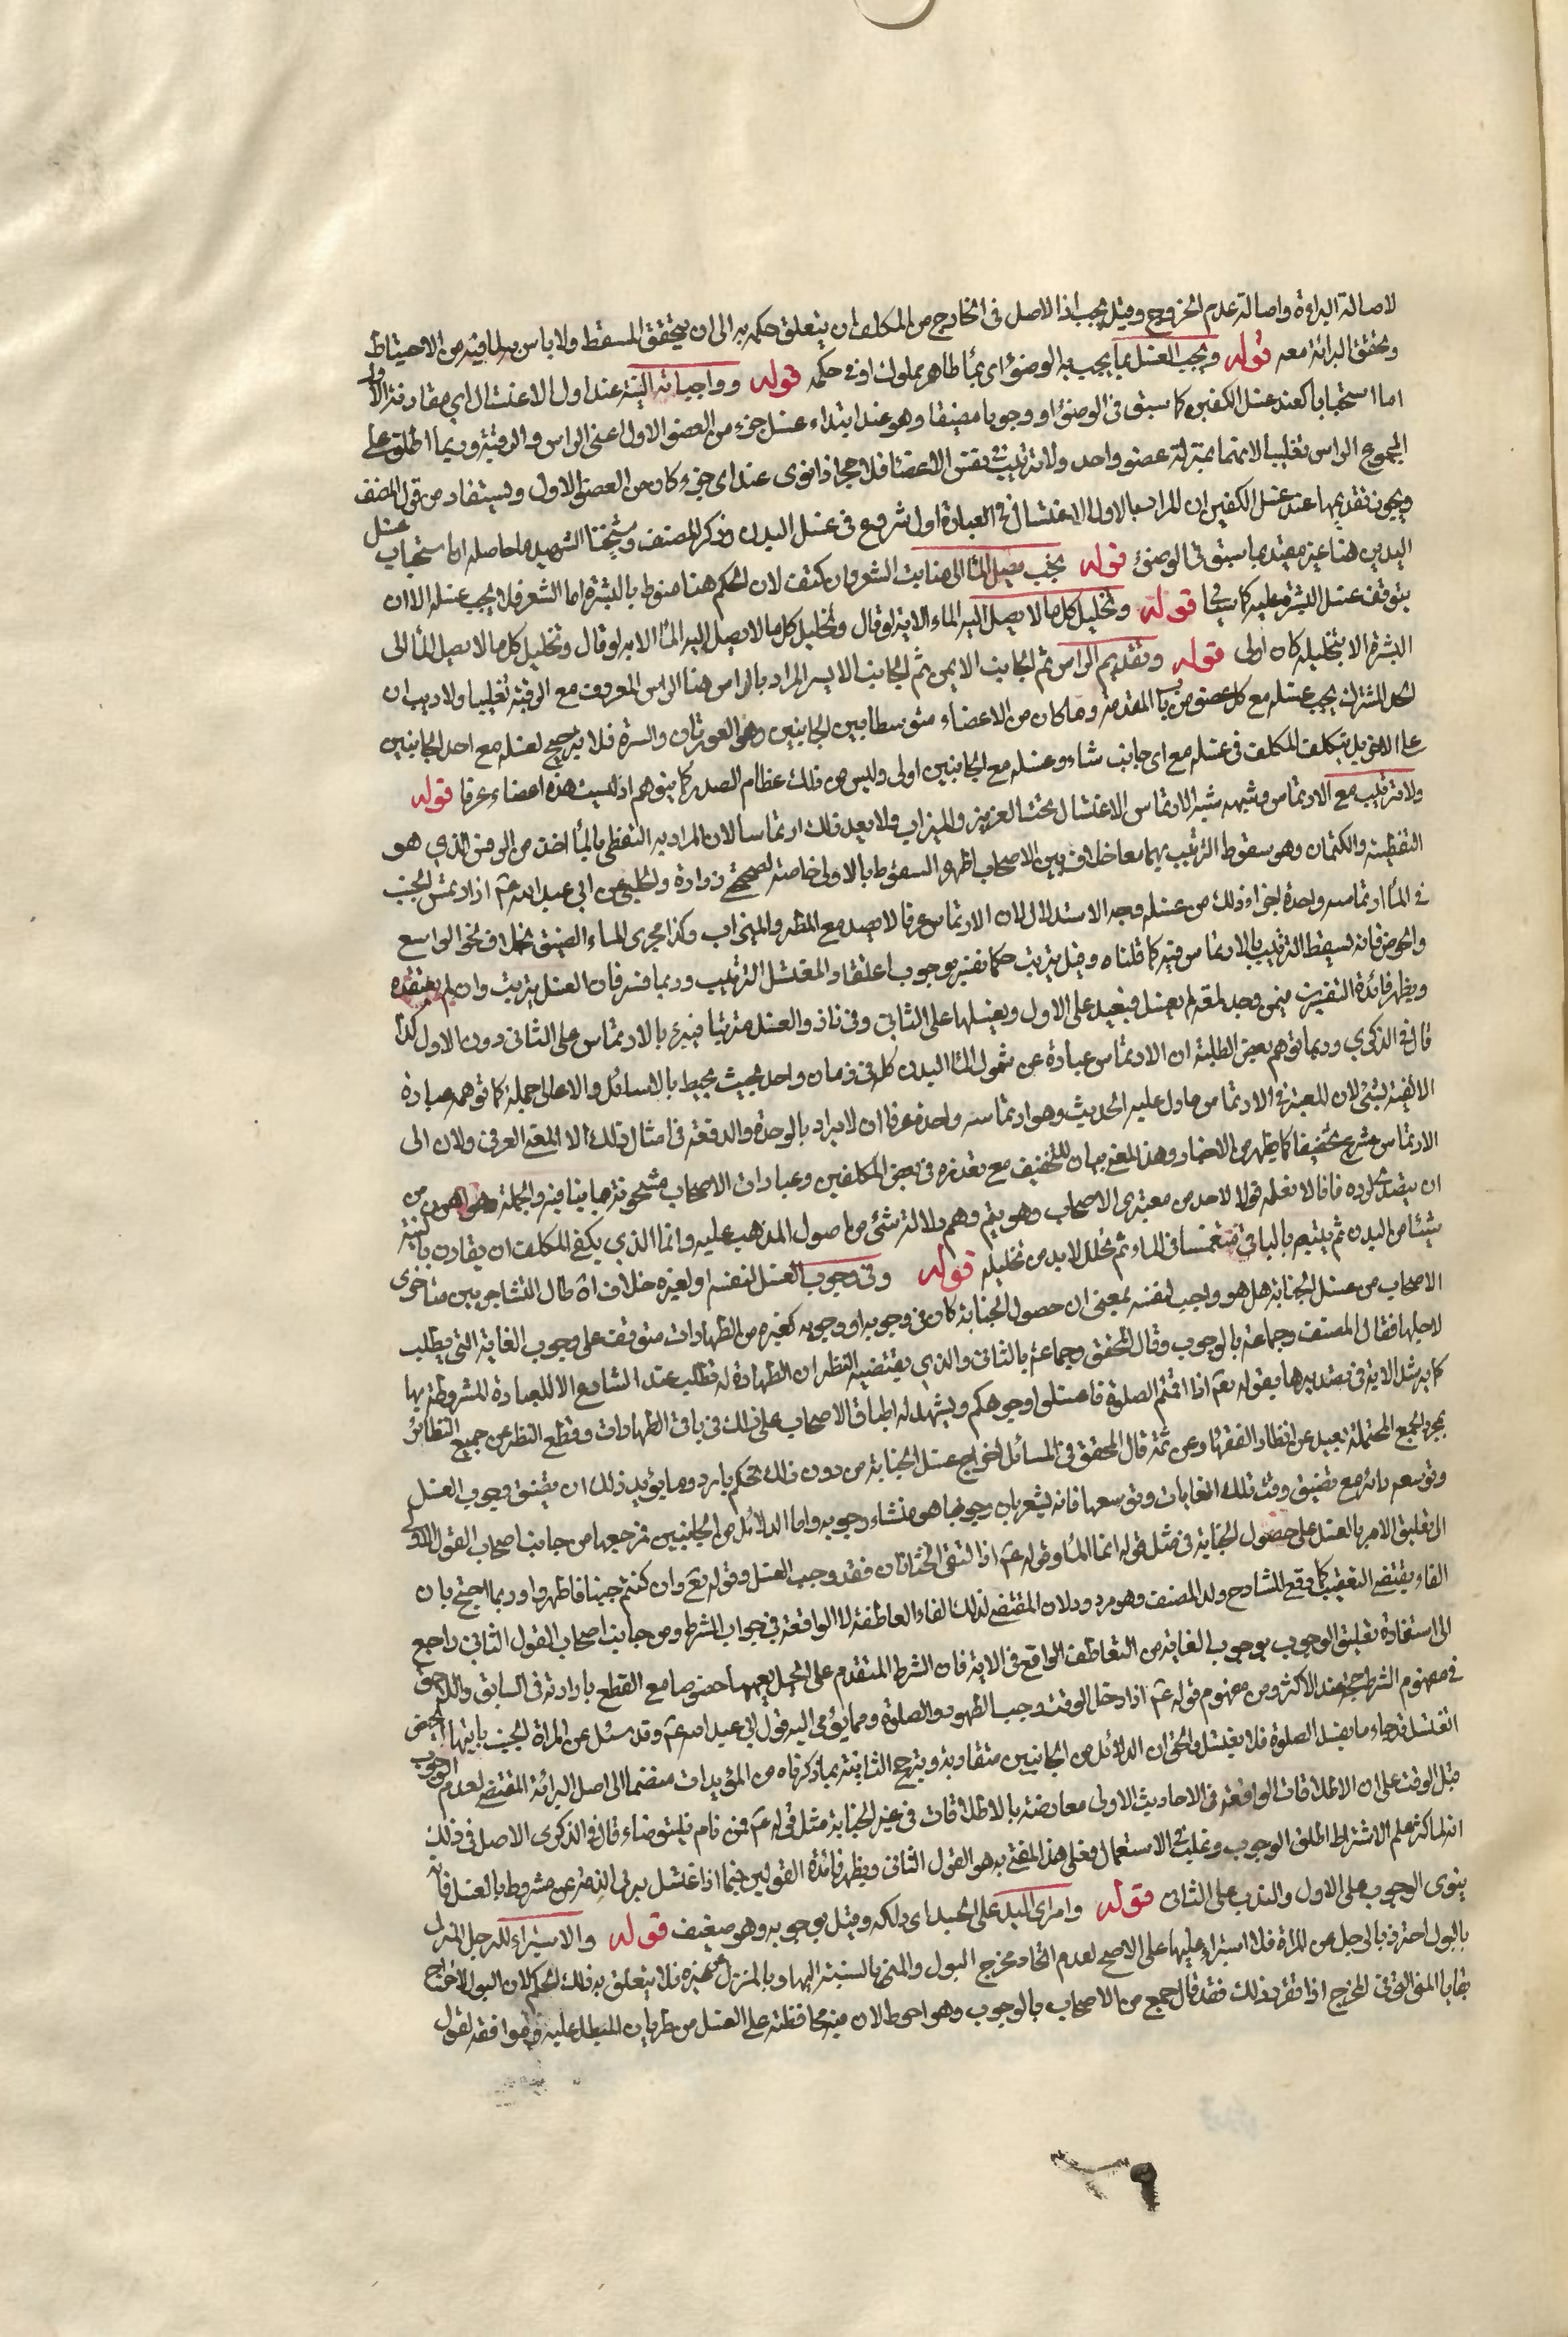 لاصالة البراءة واصالة عدم الخروج وقيل يجب اذ الاصل فى الخارج من المكلف ان يتعلق حكمه به الى ان يتحقق المسقط ولا باس به لما فيه من الاحتياط
وتحقق البرائة معه قوله ويجب الغسل بما يجب به الوضوء اى بماء طاهر مملوك او فى حكمه قوله وواجباته النية عند اول الاغتسال اى مقارنة الاول
اما استحبابا كعند غسل الكفين كما سبق فى الوضوء او وجوبا مضيقا وهو عند ابتداء غسل جزء من العضو الاول اعنى الراس والرقبة وربما اطلق على
المجموع الراس تغليبا لانهما بمنزلة عضو واحد ولا ترتيب فى نفس الاعضاء فلا حجر اذا نوى عند اى جزء كان من العضو الاول ويستفاد من قول المصنف
ويجوز تقديمها عند غسل الكفين ان المراد بالاول الاغتسال فى العبارة اول شروع فى غسل البدن وذكر المصنف وشيخنا الشهيد ما حاصله ان استحباب غسل
اليدين هنا غير مقيد بما سبق فى الوضوء قوله بحيث يصل الماء الى منابت الشعر وان كثف لان الحكم هنا منوط بالبشرة اما الشعر فلا يجب غسله الا ان
يتوقف غسل البشرة عليه كما سيجئ قوله وتخليل كل ما لا يصل اليه الماء الا به لو قال وتخليل كل ما لا يصل اليه الماء الا به لو قال وتخليل كل ما لا يصل الماء الى
البشرة الا بتخليله كان اولى قوله وتقديم الراس ثم الجانب الايمن ثم الجانب الايسر المراد بالراس هنا الراس المعروف مع الرقبة تغليبا ولا ريب ان
الحد المشترك يجب غسله مع كل عضو من باب المقدمة وما كان من الاعضاء متوسطا بين الجانبين وهو العورتان والسرة فلا يترجح لغسله مع احد الجانبين
على الاخر بل يتكلف المكلف فى غسله مع اى جانب شاء وغسله مع الجانبين اولى وليس من ذلك عظام الصدر كما يتوهم اذ ليست هذه اعضاء عرفا قوله
ولا ترتيب مع الارتماس وشبهه شبه الارتماس الاغتسال تحت الغزيز والميزاب ولا يعد ذلك ارتماسا لان المراد به التغطى بالماء اخذ من الرمس الذى هو
التغطية والكتمان وهو سقوط الترتيب بهما معا خلاف بين الاصحاب اظهره السقوط بالاولى خاصة لصحيحة زرارة والحلبى عن ابى عبد الله ع اذا ارتمس الجنب
فى الماء ارتماسه واحدة اجزاه ذلك من غسله وجه الاستدلال ان الارتماس عرفا لا يصدق مع المطر والميزاب وكذا مجرى الماء الضيق بخلاف نحو الواسع
والحوض فانه يسقط الترتيب بالارتماس فيه كما قلناه وقيل يترتب حكما نفسر بوجوب اعتقاد المغتسل الترتيب وربما فسر فان الغسل يترتب وان لم يعتقده
ويظهر فائدة التفسيرين فيمن وجد لمعة لم يغسل فيعيد على الاول ويغسلها على الثانى وفى ناذر الغسل مترتبا فيبرء بالارتماس على الثانى دون الاول كذا
قال فى الذكرى وربما توهم بعض الطلبة ان الارتماس عبارة عن شمول الماء البدن كله فى زمان واحد بحيث يحيط بالاسافل والاعالى جملة كما توهمه عبارة
الالفية لشئ لان المعتبر فى الارتماس ما دل عليه الحديث وهو ارتماسه واحدة عرفا ان لا يراد بالوحدة والدفعة فى امثال ذلك الا المعنى العرفى ولان الى
الارتماس شرع تخفيفا كما يظهر من الاخبار وهذا المعنى مناف للتخفيف مع تعذره فى بعض المكلفين وعبارات الاصحاب مشحونة بما ينافيه وبالجملة فهو اهون من
ان يتصدى لرده فانا لا نعلم قولا لاحد من معتبرى الاصحاب وهو يتم وهم دلالة شئ من اصول المذهب عليه وانما الذى يكفى المكلف ان يقارن بالنية
شيئا من البدن ثم يتبعه بالباقى منغمسا فى الماء ثم يخلل لابد من تخليله قوله وفى وجوب الغسل لنفسه او لغيره خلاف اه طال التشاجر بين متاخرى
الاصحاب من غسل الجنابة هل هو واجب لنفسه بمعنى ان حصول الجنابة كان فى وجوبه او وجوبه كغيره من الطهارات متوقف على وجوب الغاية التى يطلب
لاجلها فقال المصنف وجماعة بالوجوب وقال المحقق وجماعة بالثانى والذى يقتضيه النظر ان الطهارة لم تطلب عند الشارع الا للعبادة المشروطة بها
كما يرشد الاية فى تصديرها بقوله تع اذا قمتم الى الصلوة فاغسلوا وجوهكم ويشهد له اطباق الاصحاب على ذلك فى باقى الطهارات وقطع النظر عن جميع النظائر
بمجرد الجمع المحتملة بعيد عن انظار الفقهاء ومن ثمة قال المحقق فى المسائل اخراج غسل الجنابة من دون ذلك تحكم بارد ومما يؤيد ذلك ان تضيق وجوب الغسل
وتوسعه دائر مع تضيق وقت تلك الغايات وتوسعها فانه يشعر بان وجوبها هو منشاء وجوبه واما الدلائل من الجانبين فمرجعها من جانب اصحاب القول الاول
الى تعليق الامر بالغسل على حصول الجنابة فى مثل قوله انما الماء من الماء وقوله ع اذا التقى الختانان فقد وجب الغسل وقوله تع وان كنتم جنبا فاطهروا وربما احتج بان
الفاء يقتضى التعقيب كما وقع للشارح ولد المصنف وهو مردود لان المقتضى لذلك الفاء العاطفة لا الواقعة فى جواب الشرط ومن جانب اصحاب القول الثانى راجع
الى استفادة تعليق الوجوب بوجوب الغاية من التعاطف الواقع فى الاية فان الشرط المتقدم على الجمل يعمها خصوصا مع القطع بارادته فى السابق واللاحق
فى مفهوم الشرط حجة عند الاكثر ومن مفهوم قوله ع اذا دخل الوقت وجب الطهور والصلوة ومما يؤمى اليه قول ابى عبد الله ع وقد سئل عن المراة الجنب ياتيها الحيض
اتغتسل قد جاء ما يفسد الصلوة فلا يغتسل والحق ان الدلائل من الجانبين متقاربة ويترجح الثانية بما ذكرناه من المؤيدات منضما الى اصل البرائة المقتضى لعدم الوجوب
قبل الوقت على ان الاطلاقات الواقعة فى الاحاديث الاولى معارضة بالاطلاقات فى غير الجنابة مثل قوله ع فمن نام فليتوضاء قال فى الذكرى الاصل فى ذلك
انه لما كثر علم الاشتراط اطلق الوجوب وغلب فى الاستعمال فعلى هذا المفتى به هو القول الثانى ويظهر فائدة القولين فيما اذا اغتسل برئ الذمة من مشروط بالغسل فانه
ينوى الوجوب على الاول والندب على الثانى قوله وامرار اليد على الجسد اى دلكه وقيل بوجوبه وهو ضعيف قوله والاستبراء للرجل المنزل
بالبول احترز بالرجل من المراة فلا استبراء عليها على الاصح لعدم اتحاد مخرج البول والمنى بالنسبة اليها وبالمنزل عن غيره فلا يتعلق به ذلك الحكم لان البول لاخراج
بقايا المنى التى فى المخرج اذا تقرر ذلك فقد قال جمع من الاصحاب بالوجوب وهو احوط لان فيه محافظة على الغسل من طريان المبطل عليه وموافقة لقول